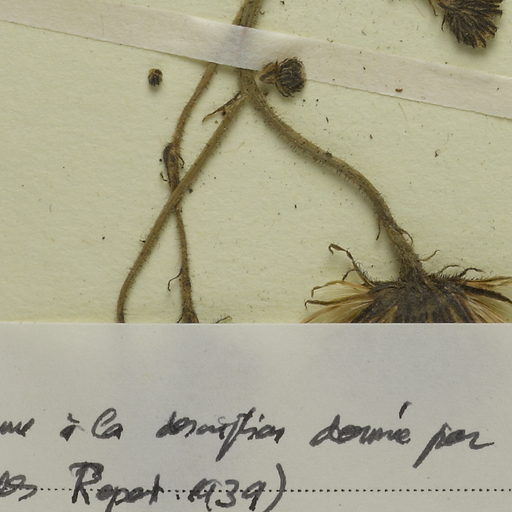 à la description donnée par
Repert. 1939)